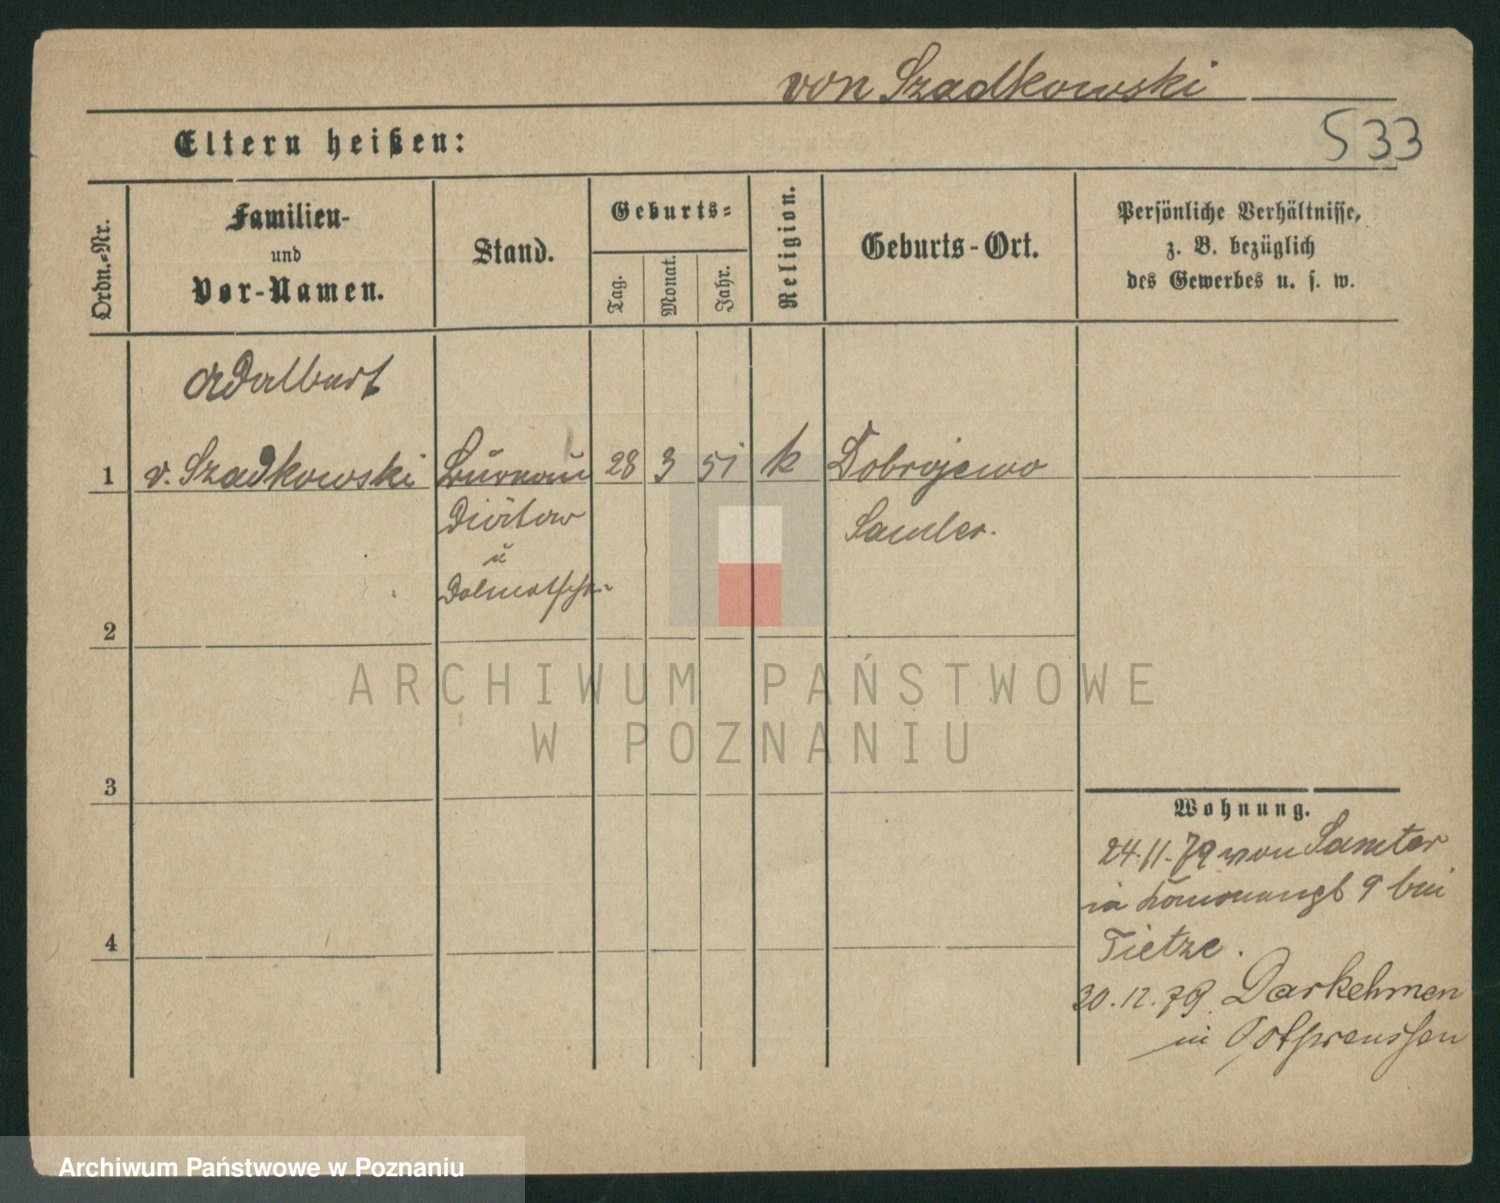 von Szadkowski
533
Eltern heißen:
Ordn.-Nr.
Familien-
und
Vor-Namen.
Stand.
Geburts-
Tag.
Monat.
Jahr.
Religion.
Geburts-Ort.
Persönliche Verhältnisse,
z. B. bezüglich
des Gewerbes u. s. w.
Adalbert
1 v. Szadkowski Büreau 28 3 51 k Dobrojewo
Diätar Samter.
u
Dolmetscher
2
ARCHIWUM PAŃSTWOWE
W POZNANIU
3
Wohnung.
24.11.79 von Samter
in 9 bei
Tietze.
4
30.12.79. Darkehmen
in Ostpreussen
Archiwum Państwowe w Poznaniu